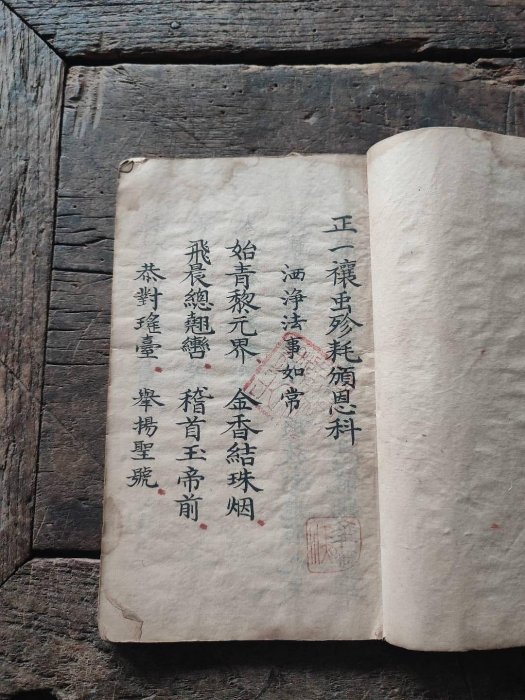 正一禳虫殄耗頒恩科
洒浄法事如常
始青黎元界 金香結珠烟
飛晨總翹轡 稽首玉帝前
恭對瑤臺 舉揚聖號